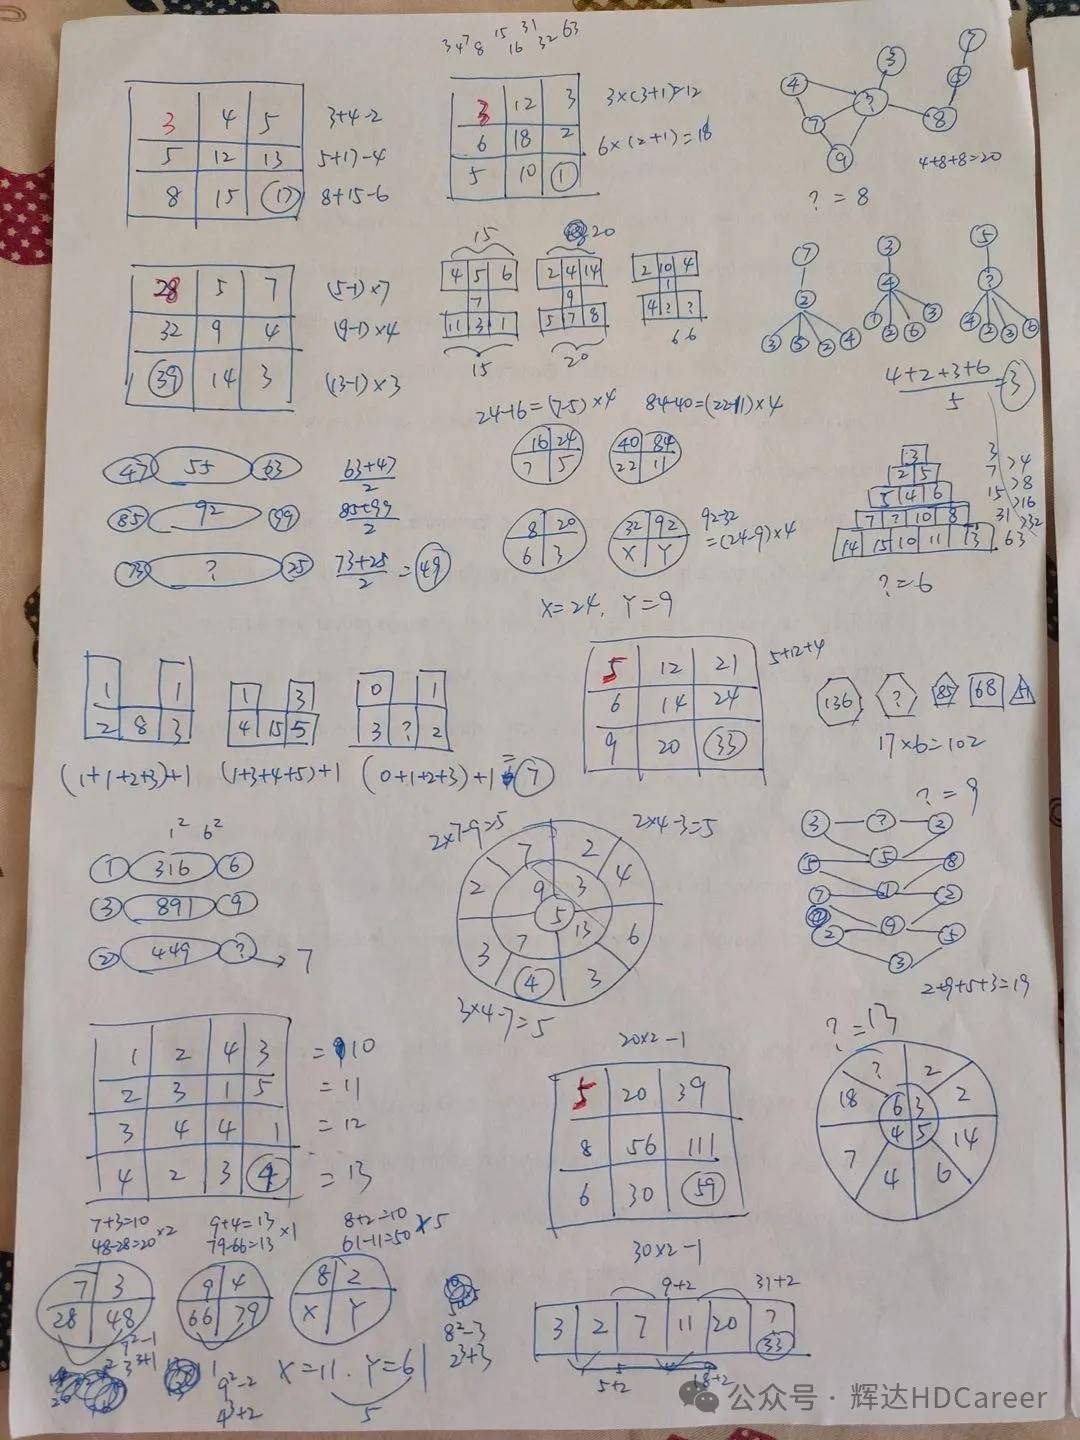 3 4 7 8 15 16 31 32 63
3 4 5 3+4-2
5 12 13 5+17-4
8 15 17 8+15-6
3 12 3 3×(3+1)=12
6 18 2 6×(2+1)=18
5 10 1
4 3 7
? 5
7 8
9
4+8+8=20
? = 8
28 5 7 (5-1)×7
32 9 4 (9-1)×4
39 14 3 (13-1)×3
15
4 5 6
7
11 3 1
15
20
2 4 14
9
5 7 8
20
2 10 4
1
4 ? ?
6 6
7 3 5
2 4 ?
3 5 2 4
1 2 6 3
4 2 3 6
4+2+3+6
5
3
24-16=(7-5)×4 84-40=(22-11)×4
16 24 40 84
7 5 22 11
8 20 32 92
6 3 X Y
92-32
=(24-9)×4
X=24, Y=9
47 55 63 63+47
2
85 92 99 85+99
2
73 ? 25 73+25
2
= 49
3
2 5
5 4 6
7 ? 10 8
14 15 10 11 13
3
7 >4
15 >8
31 >16
63 >32
?=6
1 1
2 8 3
1 3
4 15 5
0 1
3 ? 2
(1+1+2+3)+1 (1+3+4+5)+1 (0+1+2+3)+1 = 7
5 12 21 5+12+4
6 14 24
9 20 33
136 ? 85 68 51
17×6=102
1² 6²
1 316 6
3 891 9
2 449 ? 7
2×7-9=5 2×4-3=5
7 2
2 9 3 4
5
3 7 13 6
4 3
3×4-7=5
? = 9
3 ? 2
5 5 8
7 1 2
2 9 5
3
2+9+5+3=19
1 2 4 3 =10
2 3 1 5 =11
3 4 4 1 =12
4 2 3 4 =13
20×2-1
5 20 39
8 56 111
6 30 59
30×2-1
?=13
? 2
18 6 3 2
7 4 5 14
4 6
7+3=10
48-28=20 ×2
9+4=13
79-66=13 ×1
8+2=10
61-11=50 ×5
7 3 9 4 8 2
28 48 66 79 X Y
X=11. Y=61
5
9²-2
4³+2
8²-3
2³+3
9+2 31+2
3 2 7 11 20 ?
33
5+2 18+2
公众号 · 辉达HDCareer